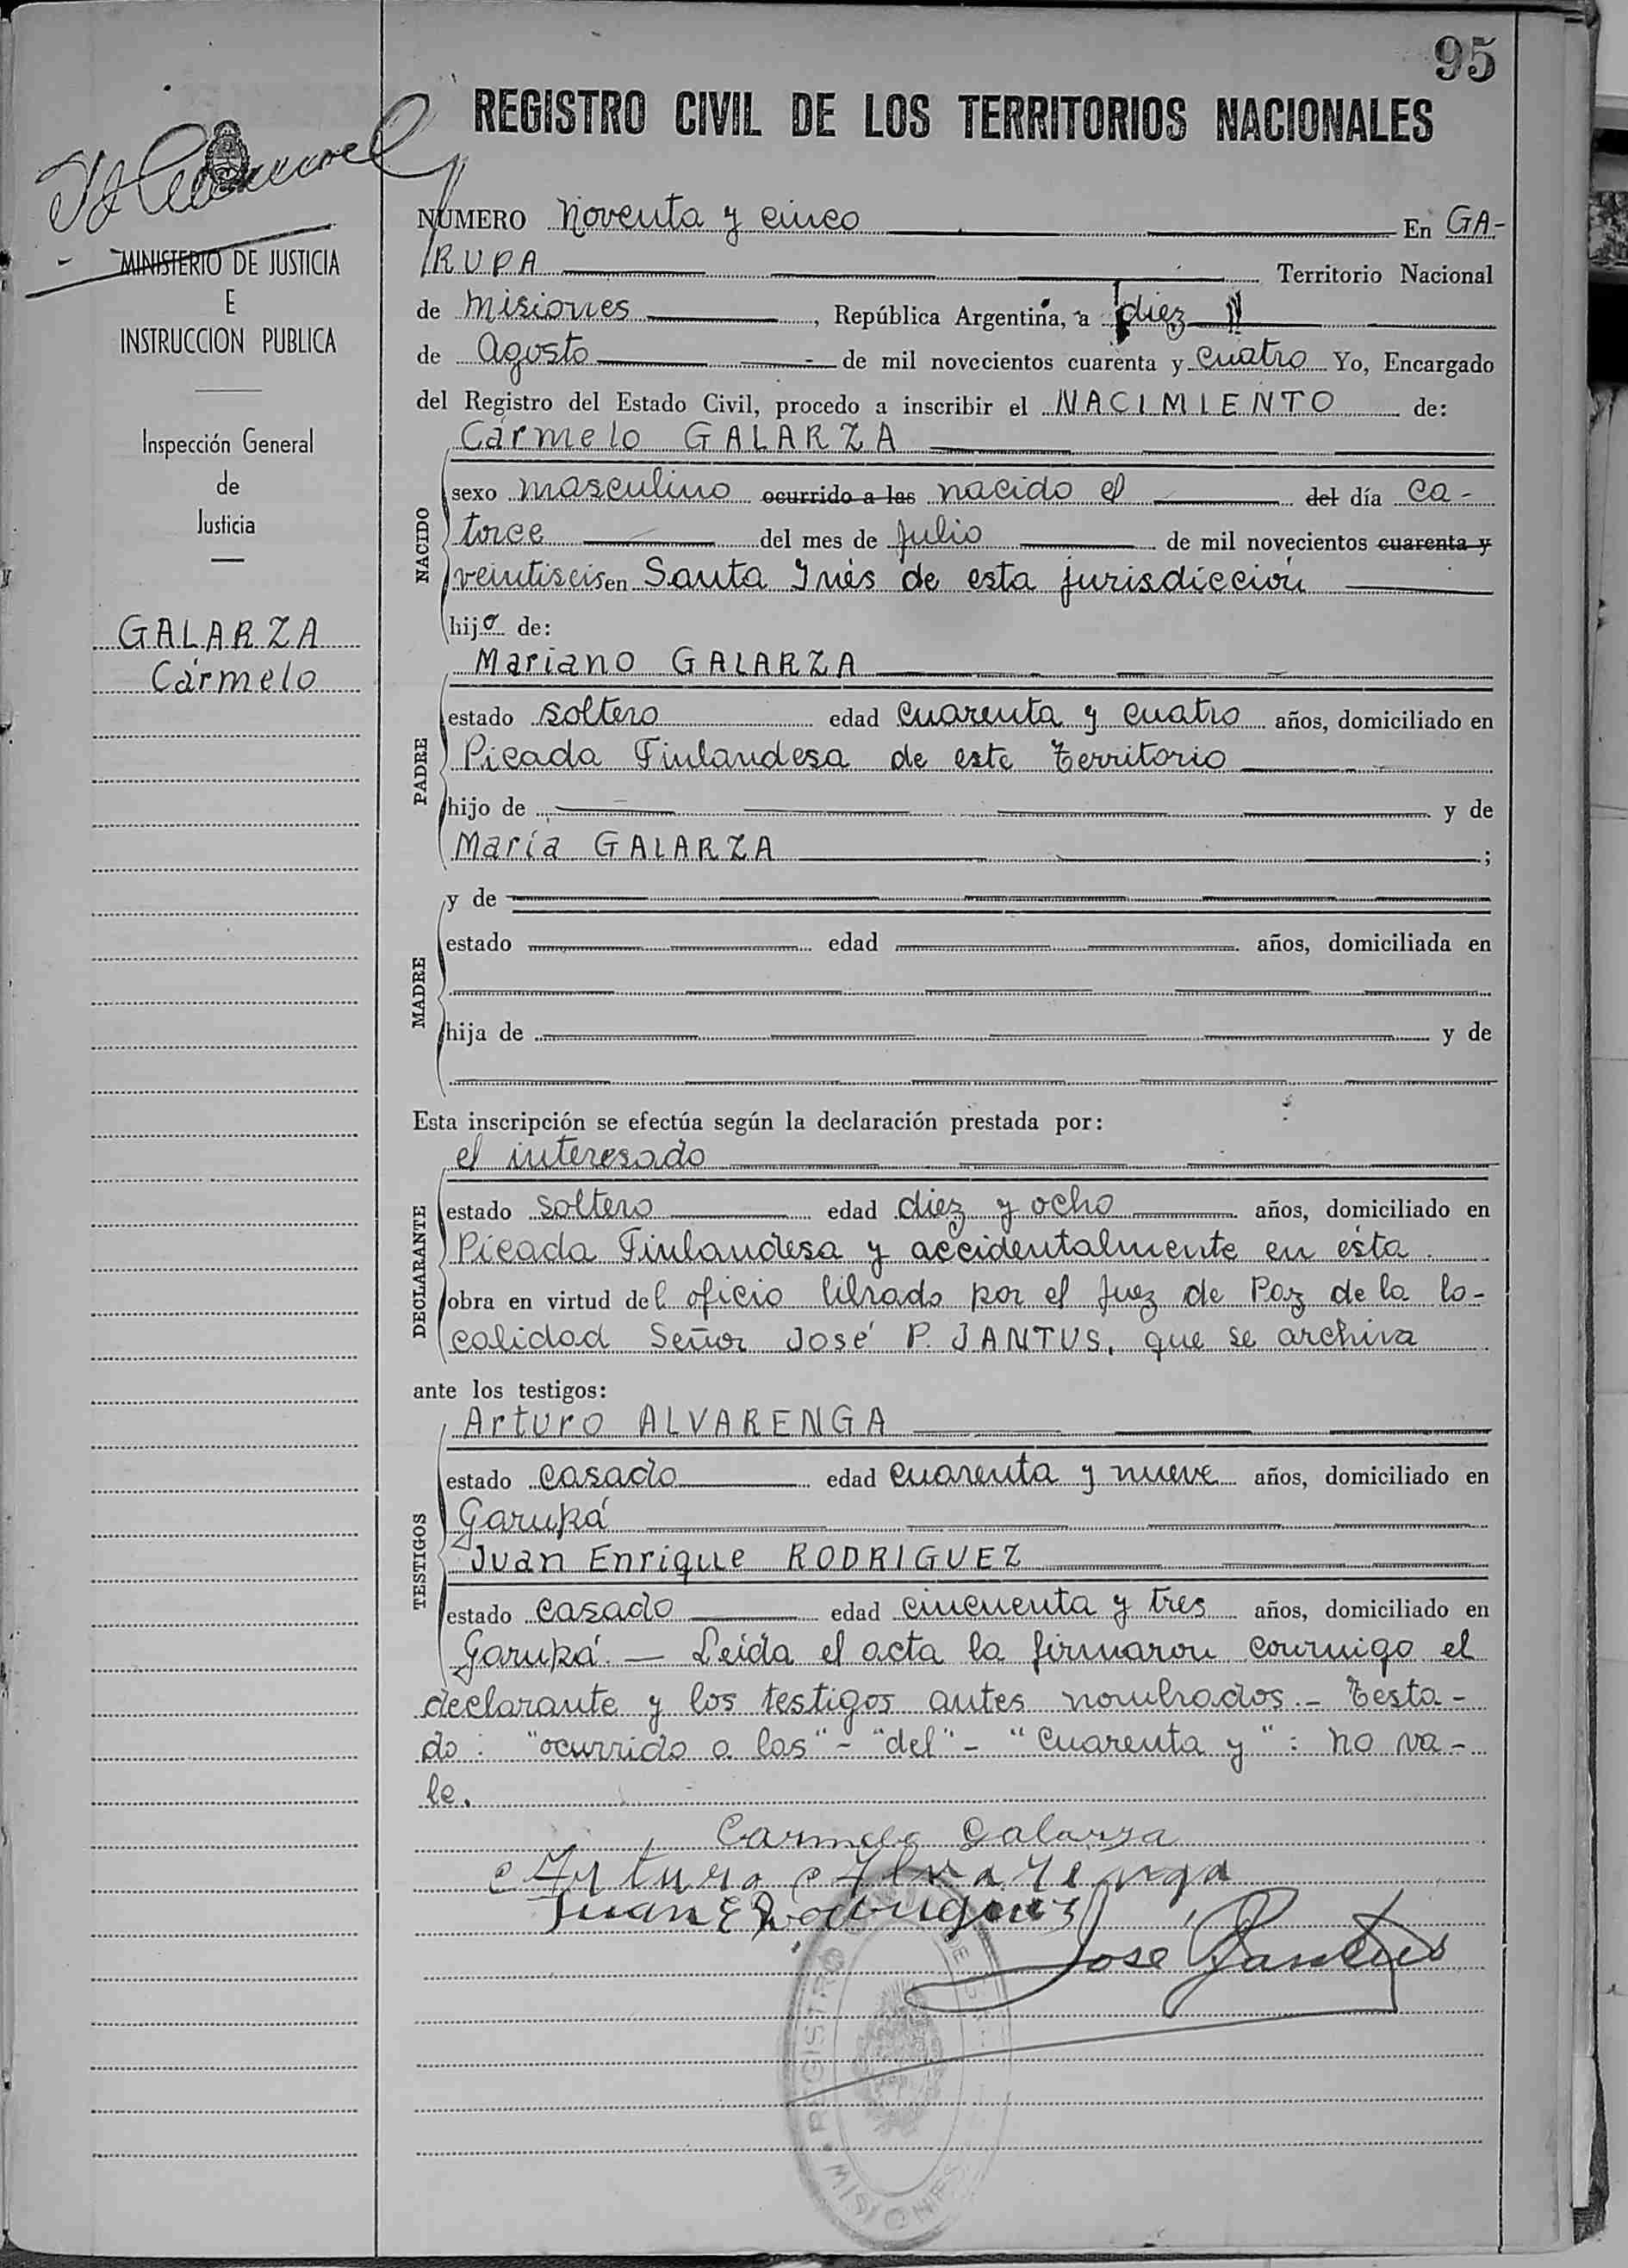 95
REGISTRO CIVIL DE LOS TERRITORIOS NACIONALES
MINISTERIO DE JUSTICIA
E
INSTRUCCION PUBLICA
Inspección General
de
Justicia
GALARZA
Cármelo
NUMERO Noventa y cinco En GA-
RUPA Territorio Nacional
de Misiones, República Argentina, a diez
de Agosto de mil novecientos cuarenta y cuatro Yo, Encargado
del Registro del Estado Civil, procedo a inscribir el NACIMIENTO de:
Cármelo GALARZA
NACIDO
sexo masculino ocurrido a las nacido el del día ca-
torce del mes de Julio de mil novecientos cuarenta y
veintiseis en Santa Inés de esta jurisdicción
hijo de:
PADRE
Mariano GALARZA
estado soltero edad cuarenta y cuatro años, domiciliado en
Picada Finlandesa de este territorio
hijo de y de
María GALARZA ;
MADRE
y de
estado edad años, domiciliada en
hija de y de
Esta inscripción se efectúa según la declaración prestada por:
DECLARANTE
el interesado
estado soltero edad diez y ocho años, domiciliado en
Picada Finlandesa y accidentalmente en ésta
obra en virtud del oficio librado por el Juez de Paz de la lo-
calidad Señor José P. JANTUS, que se archiva
ante los testigos:
TESTIGOS
Arturo ALVARENGA
estado casado edad cuarenta y nueve años, domiciliado en
Garupá
Juan Enrique RODRIGUEZ
estado casado edad cincuenta y tres años, domiciliado en
Garupá. — Leída el acta la firmaron conmigo el
declarante y los testigos antes nombrados.- Testa-
do: "ocurrido a las" - "del" - "cuarenta y": no va-
le.
Carmelo Galarza
Arturo Alvarenga
Juan E Rodriguez
José P Jantus
REGISTRO
DE
MISIONES